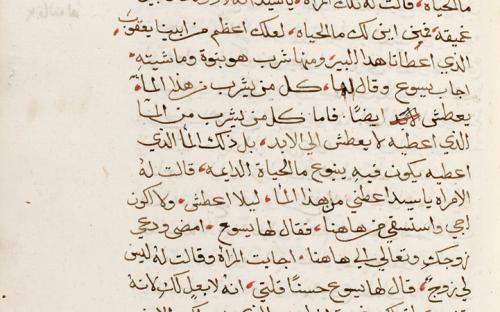 ماالحياه، قالت له تلك المراه، ياسيد انه
عميقه، فمن اين لك ماالحياه، لعلك اعظم من ابينا يعقوب
الذي اعطانا هدا البير ومنها شرب هو بنوة وماشيته
اجاب يسوع وقال لها، كل من يشرب من هذا الماء
يعطش ايضًا، فاما كل من يشرب من الماء
الذي اعطيه لا يعطش الي الابد، بل ذلك الماء الذي
اعطيه يكون فيه ينبوع ماالحياة الدايمة، قالت لهُ
الامراه ياسيد اعطني من هدا الماء، ليلا اعطش، ولا اكون
اجي واستسقي من هاهنا، فقال لها يسوع، امضي ودعي
زوجك، وتعالي الي هاهنا، اجابت المراة وقالت لهُ ليس
لي زوج، قال لها يسوع حسنًا قلتي، انه لا بعل لك، لانهُ